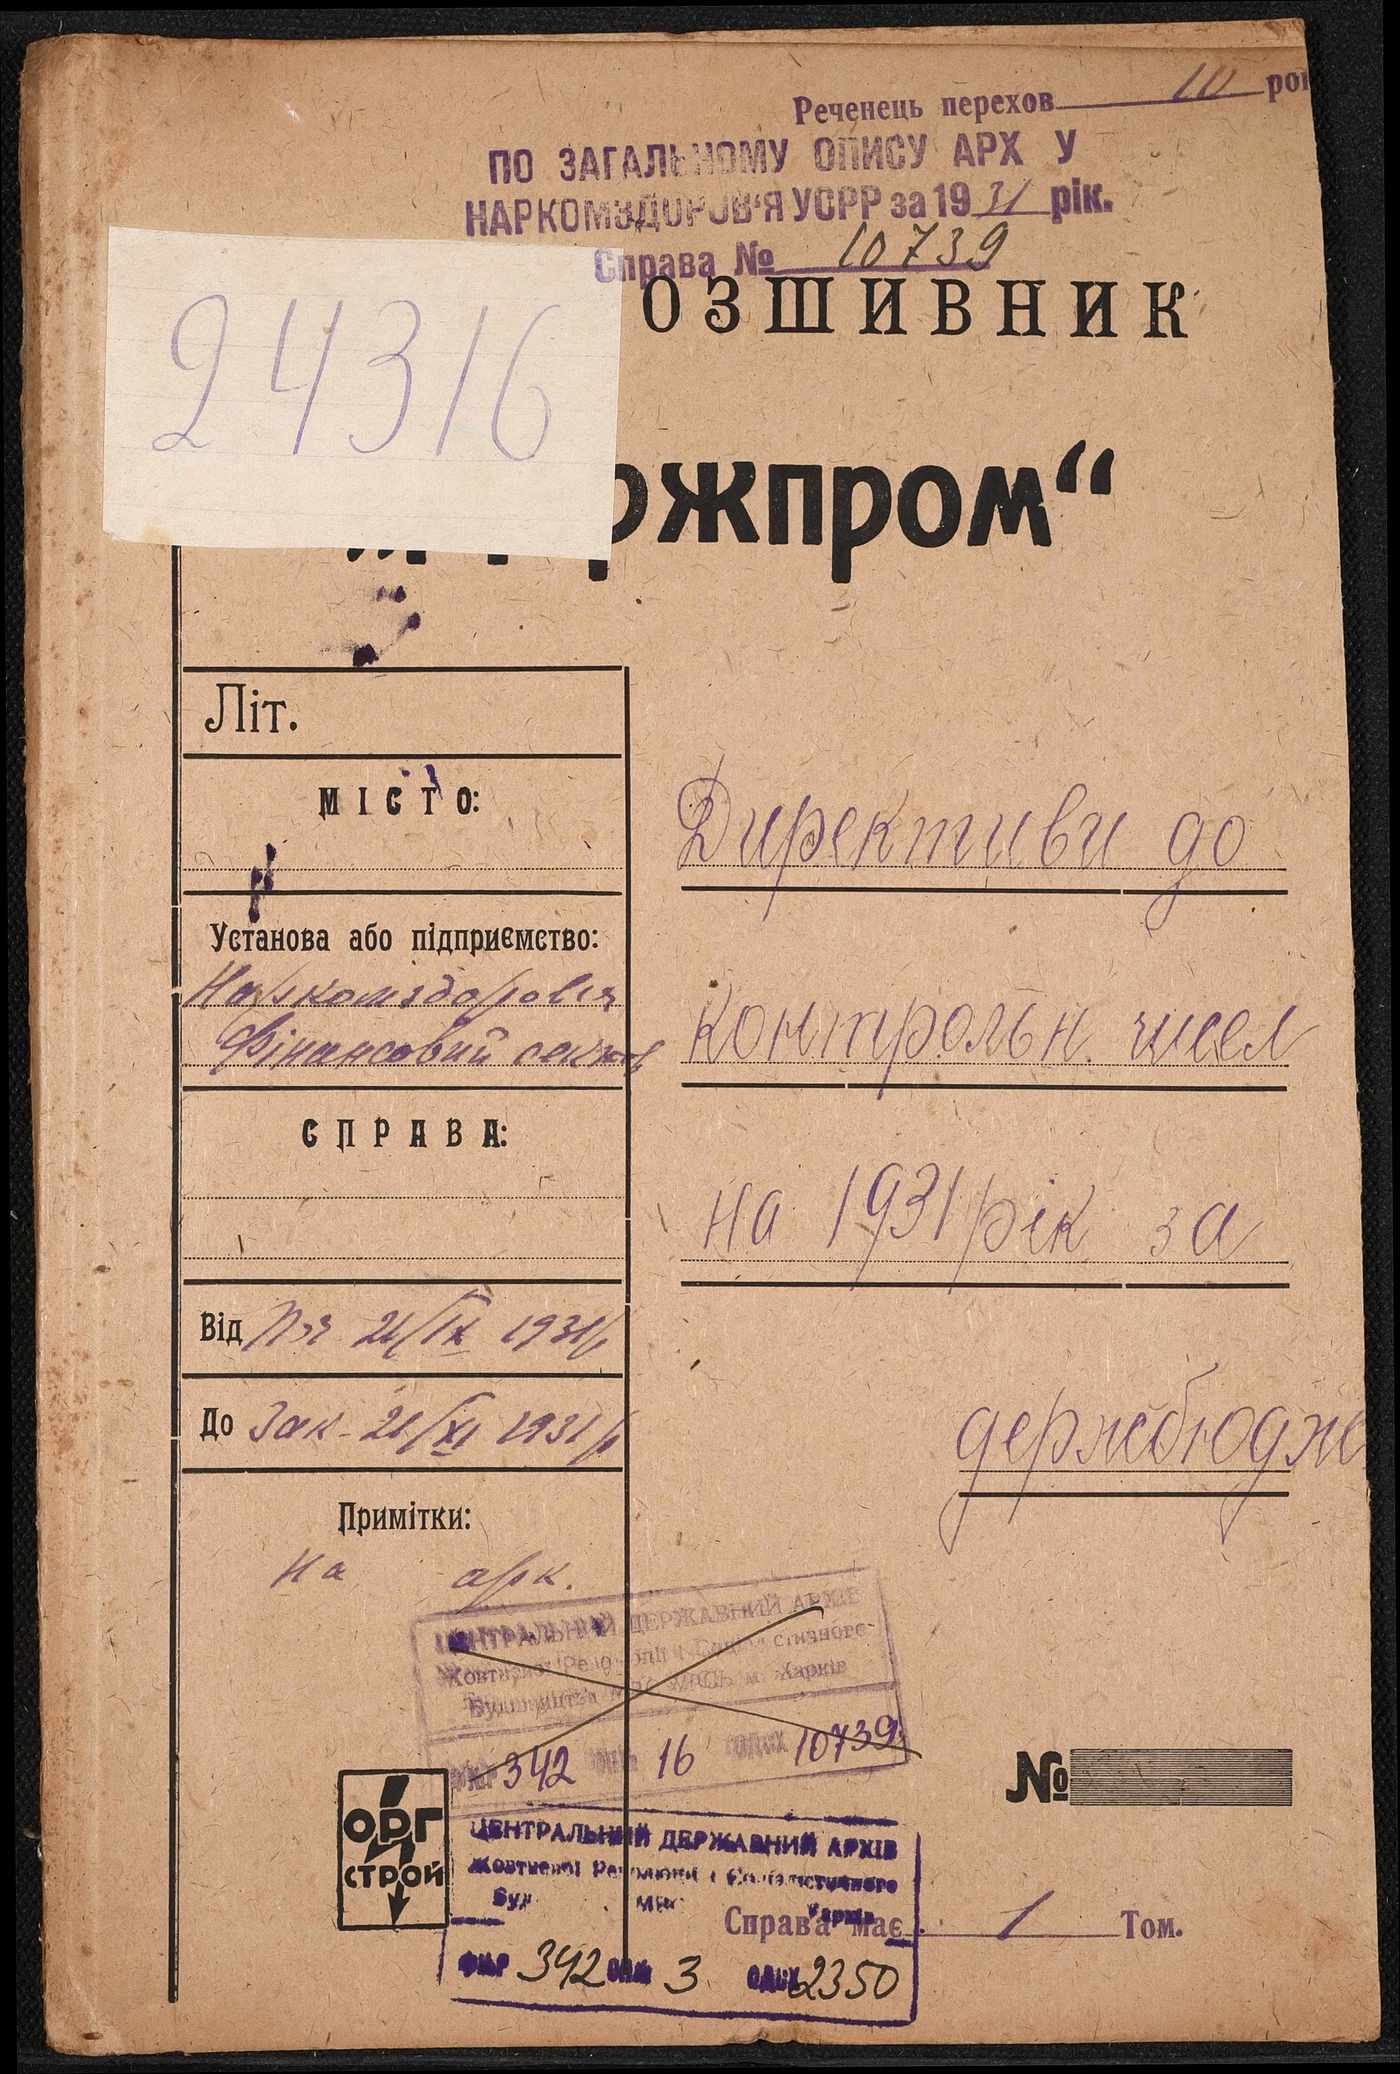 Реченець перехов. 10 рок
ПО ЗАГАЛЬНОМУ ОПИСУ АРХ У
НАРКОМЗДОРОВ'Я УСРР за 1931 рік.
Справа № 10739
24316
ОЗШИВНИК
ржпром“
Літ.
МІСТО:
Установа або підприємство:
Наркомздоровля
Фінансовий сектор
СПРАВА:
Від 21/IX 1931р
До Зак. 21/XI 1931р
Примітки:
На арк.
Директиви до
контрольн. чисел
на 1931 рік за
держбюдже
ЦЕНТРАЛЬНИЙ ДЕРЖАВНИЙ АРХІВ
Жовтневої Революції і Соціалістичного
Будівництва м. Харків
ФНР 342 16 10739
№
ОРГ
СТРОЙ
ЦЕНТРАЛЬНИЙ ДЕРЖАВНИЙ АРХІВ
Жовтневої Революції і Соціалістичного
Буд Харків
Справа має 1 Том.
342 3 2350